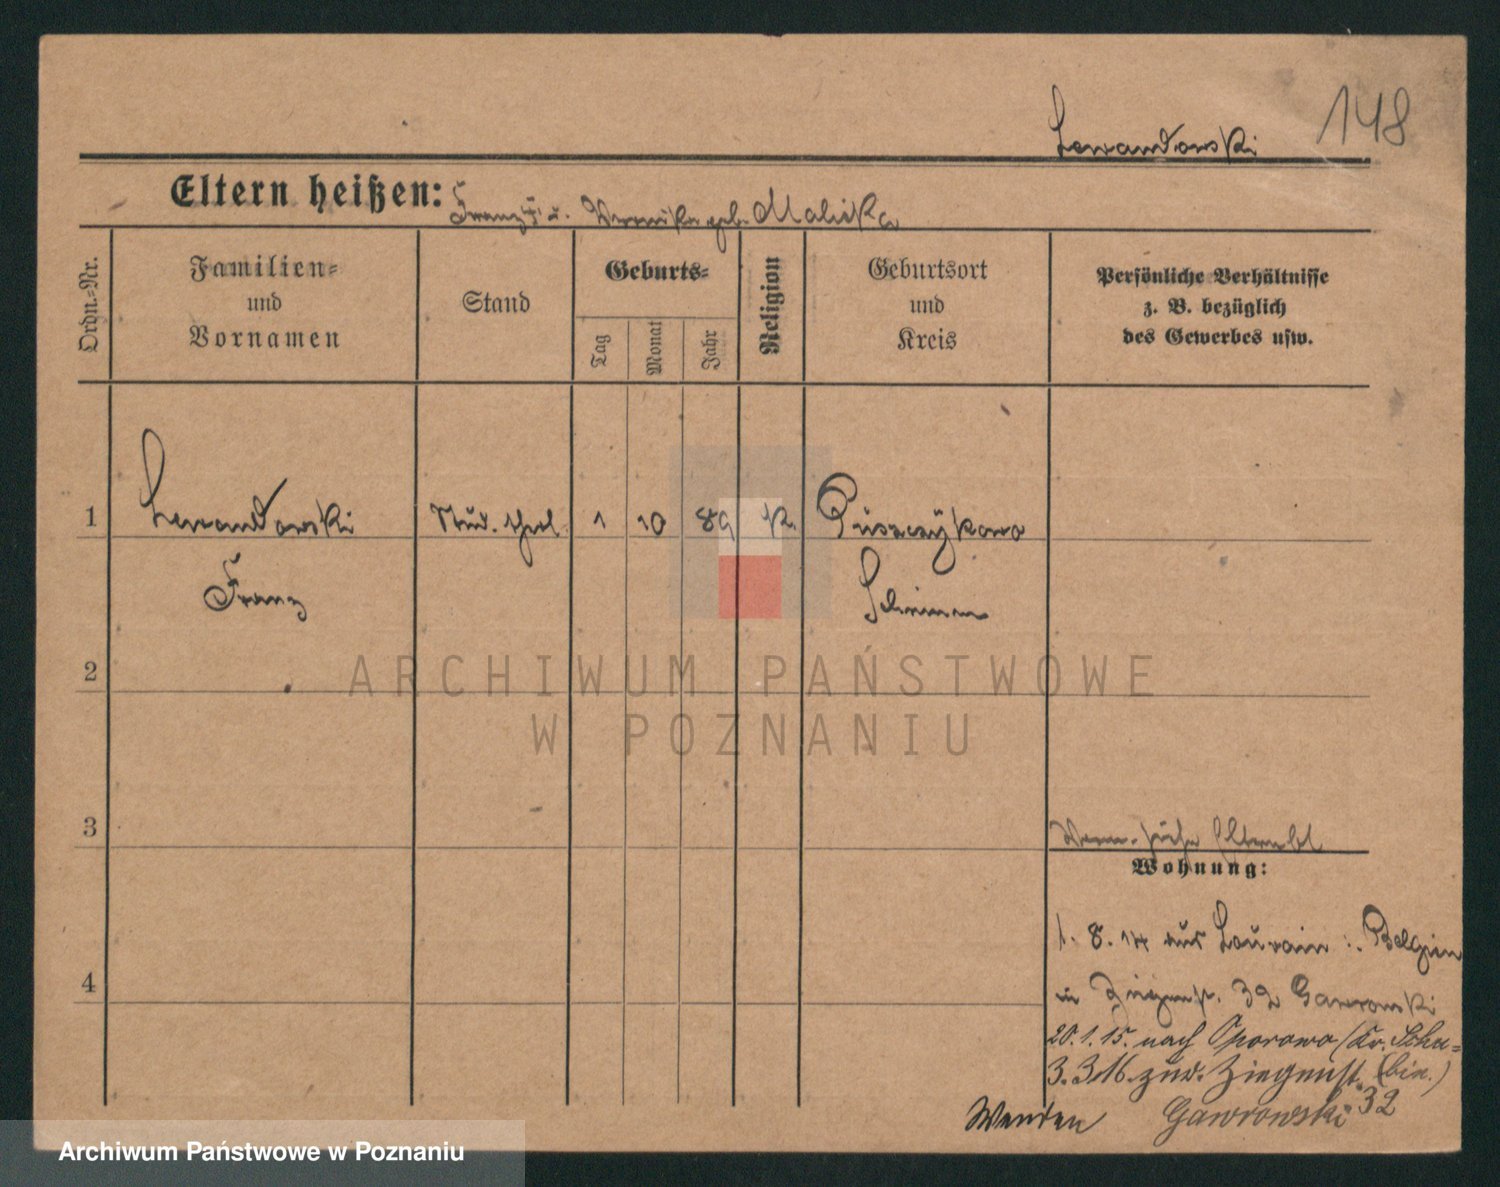 148
Lewandowski
Eltern heißen: Franz u. geb. Malicka
Ordn.-Nr.
Familien-
und
Vornamen
Stand
Geburts-
Tag
Monat
Jahr
Religion
Geburtsort
und
Kreis
Persönliche Verhältnisse
z. B. bezüglich
des Gewerbes usw.
1 Lewandowski Stud. theol. 1 10 89 K. Puszczÿkowo
Franz Schrimm
2
ARCHIWUM PAŃSTWOWE
W POZNANIU
3
siehe
Wohnung:
1. 8. 14 aus Louvain Belgien
4
in 32 Gawronski
20. 1. 15. nach Oporowo (Kr. Schu=
3. 3. 16. zur. Ziegenstr. (bin.)
Wenden Gawrowski 32
Archiwum Państwowe w Poznaniu